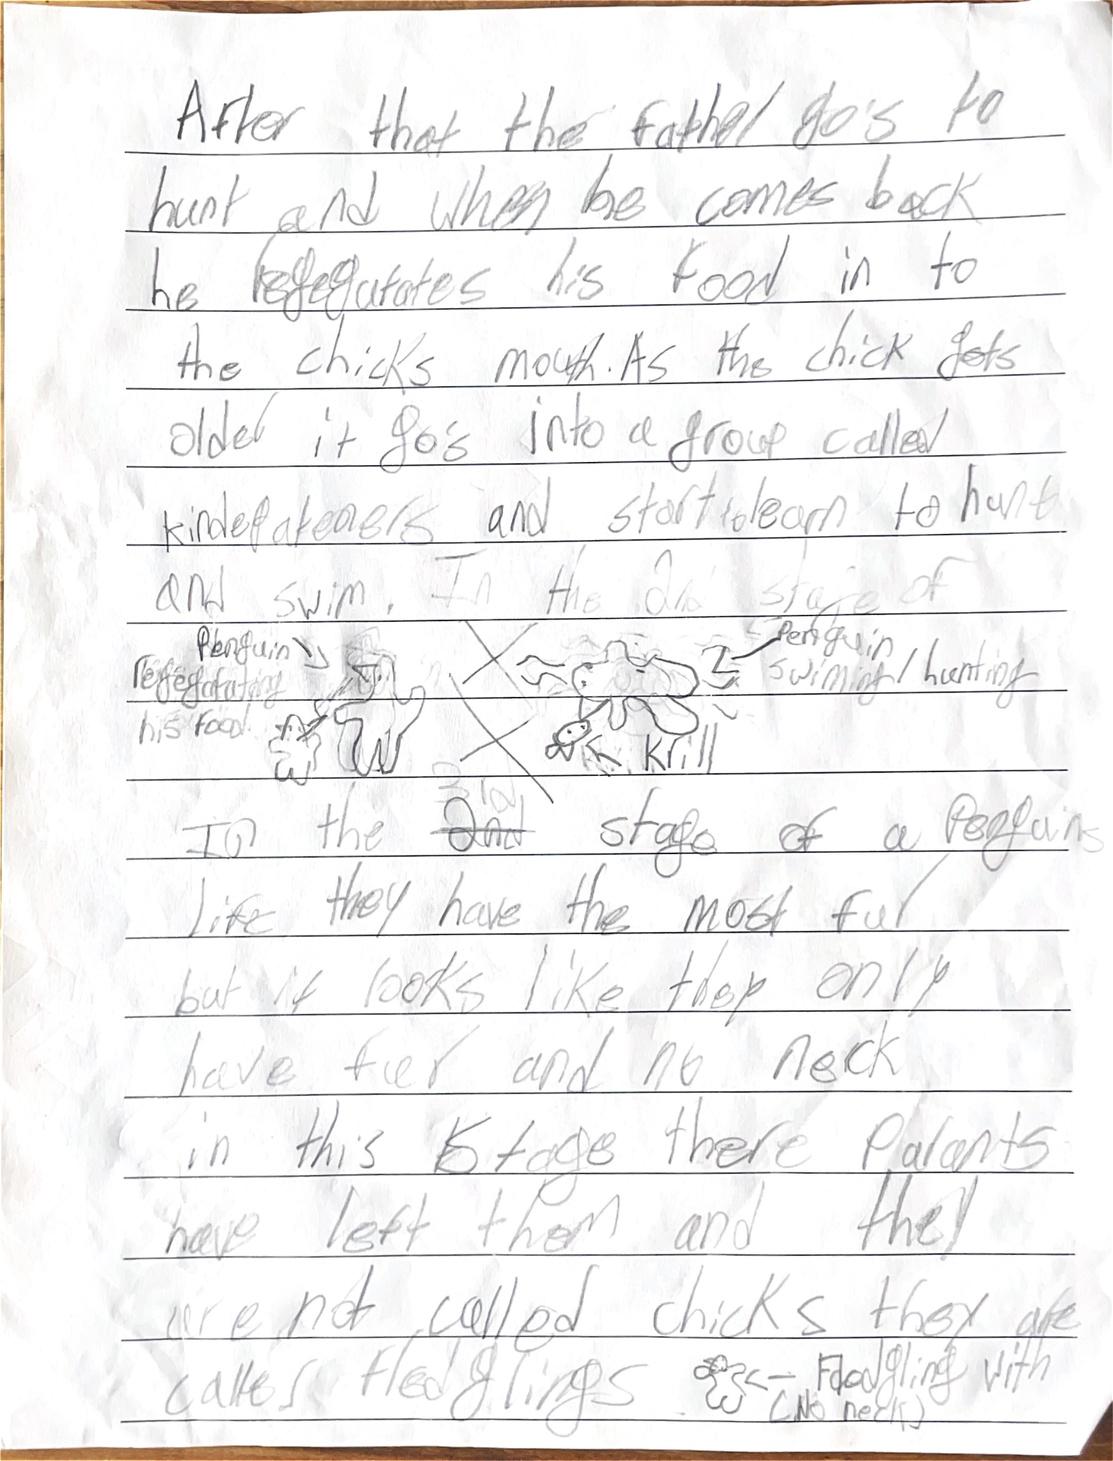 After that the father go's to
hunt and when he comes back
he regegatates his food in to
the chicks mouth. As the chick gets
older it go's into a group called
kindegateners and start to learn to hunt
and swim. In the 2nd stage of
Penguin
regegatating
his food
Penguin
swiming/hunting
Krill
3rd
In the 2nd stage of a Penguins
life they have the most fur
but it looks like they only
have fuer and no neck
in this stage there Parents
have left them and they
are not called chicks they are
calles fledglings
Fledgling with
(No neck)